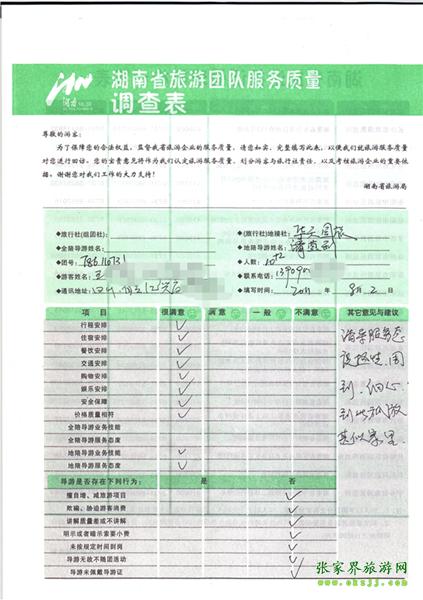 湖南省旅游团队服务质量
调查表
尊敬的游客：
为了保障您的合法权益，监督我省旅游企业的服务质量，请您如实、完整填写此表，以便我们就旅游服务质量
对您进行回访。您的宝贵意见将作为我们认定旅游服务质量、划分游客与旅行社责任、以及考核旅游企业的重要依
据。谢谢您对我们工作的大力支持！
湖南省旅游局
◆旅行社(组团社)： ◆(旅行社)地接社：
◆全陪导游姓名： ◆地陪导游姓名：
◆团号： ◆人数：
◆游客姓名：王 ◆联系电话：
◆通讯地址： ◆填写时间：2011 年 8 月 2 日
项 目 很满意 满 意 一 般 不满意 其它意见与建议
行程安排
住宿安排
餐饮安排
交通安排
购物安排
娱乐安排
安全保障
价格质量相符
全陪导游业务技能
全陪导游服务态度
地陪导游业务技能
地陪导游服务态度
导游服务态
到、细心
导游是否存在下列行为： 是 否
擅自增、减旅游项目
欺骗、胁迫游客消费
讲解质量差或不讲解
明示或者暗示索要小费
未按规定时间到岗
导游无故不随团活动
导游未佩戴导游证
张家界旅游网
www.okzjj.com